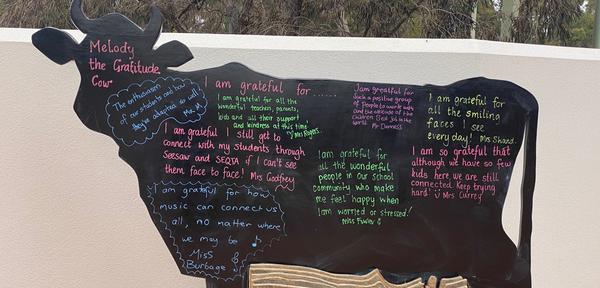 Melody
the Gratitude
Cow
The enthusiasm
of our students and how
they've adapted so well!
Mrs M
I am grateful for ......
I am grateful for all the
wonderful teachers, parents,
kids and all their support
and kindness at this time.
Mrs Rogers
I am grateful for
such a positive group
of people to work with
and the attitude of the
children. Best job in the
world. Mr Danness
I am grateful for
all the smiling
faces I see
every day! Mrs Shand.
I am grateful I still get to
connect with my students through
Seesaw and SEQTA if I can't see
them face to face! Mrs Godfrey
I am grateful for
all the wonderful
people in our school
community who make
me feel happy when
I am worried or stressed!
Miss Fowler
I am so grateful that
although we have so few
kids here, we are still
connected. Keep trying
hard! Mrs Currey
I am grateful for how
music can connect us
all, no matter where
we may be
Miss
Burbage